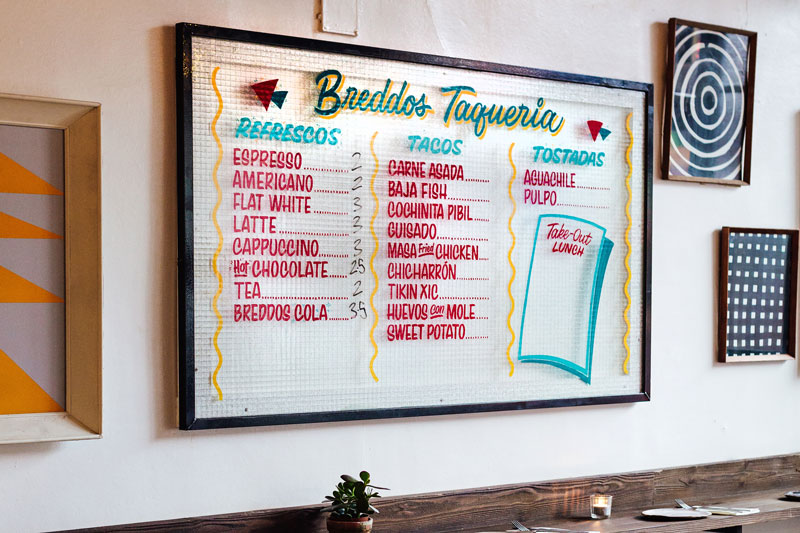 Breddos Taqueria
REFRESCOS
ESPRESSO........ 2
AMERICANO....... 2
FLAT WHITE....... 3
LATTE............ 3
CAPPUCCINO..... 3
Hot CHOCOLATE.... 25
TEA.............. 2
BREDDOS COLA..... 35
TACOS
CARNE ASADA.....
BAJA FISH.......
COCHINITA PIBIL...
GUISADO........
MASA Fried CHICKEN.
CHICHARRÓN......
TIKIN XIC........
HUEVOS con MOLE..
SWEET POTATO....
TOSTADAS
AGUACHILE.......
PULPO..........
Take-Out
LUNCH